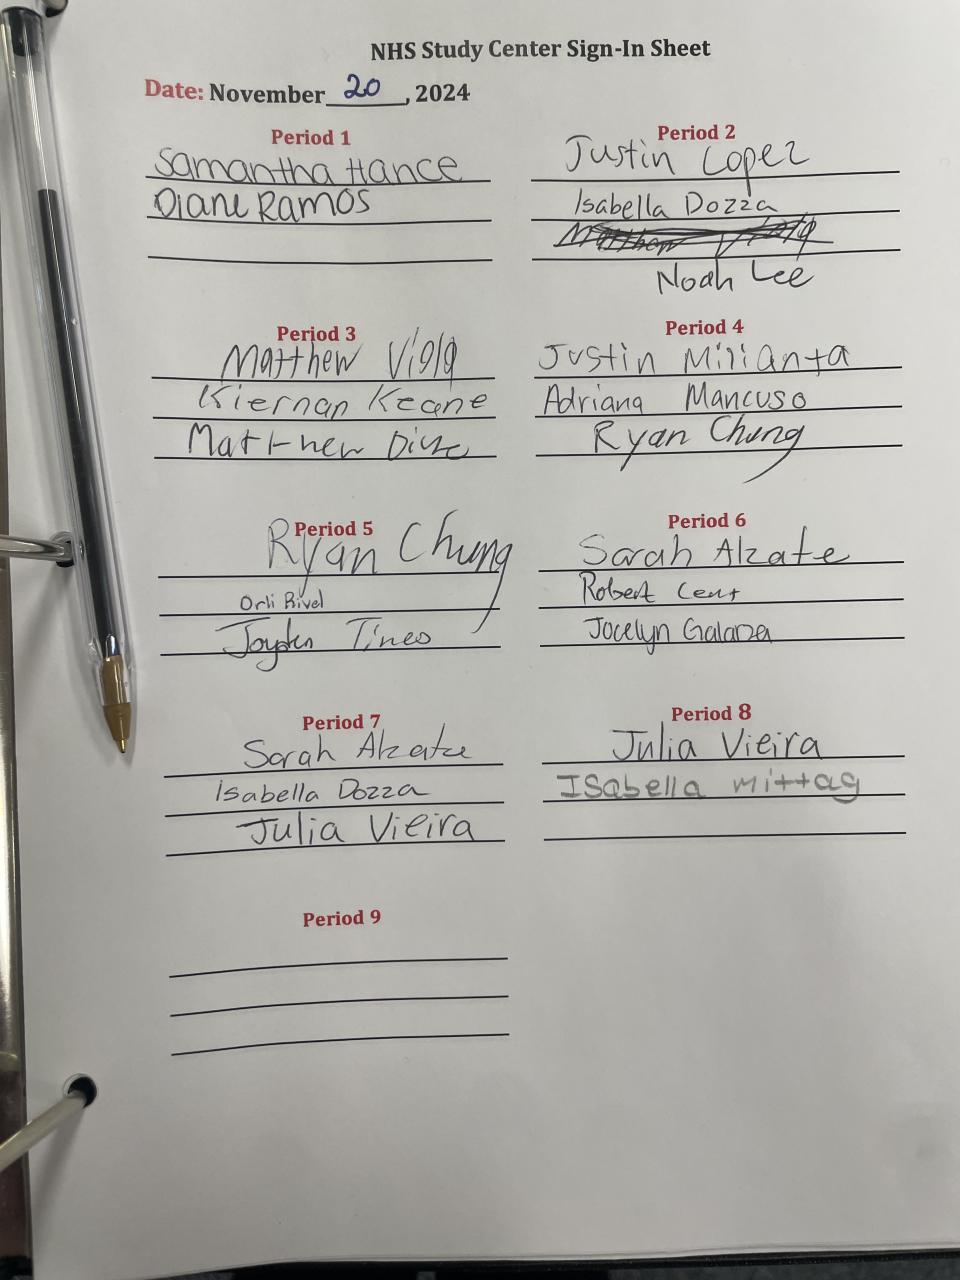 NHS Study Center Sign-In Sheet
Date: November 20, 2024
Period 1
Samantha Hance
Diane Ramos
Period 2
Justin Lopez
Isabella Dozza
Matthew Viola
Noah Lee
Period 3
Matthew Viola
Kiernan Keane
Matthew
Period 4
Justin Milianta
Adriana Mancuso
Ryan Chung
Period 5
Ryan Chung
Orli Rivel
Jayden Tineo
Period 6
Sarah Alzate
Robert
Jocelyn Galarza
Period 7
Sarah Alzate
Isabella Dozza
Julia Vieira
Period 8
Julia Vieira
Isabella mittag
Period 9